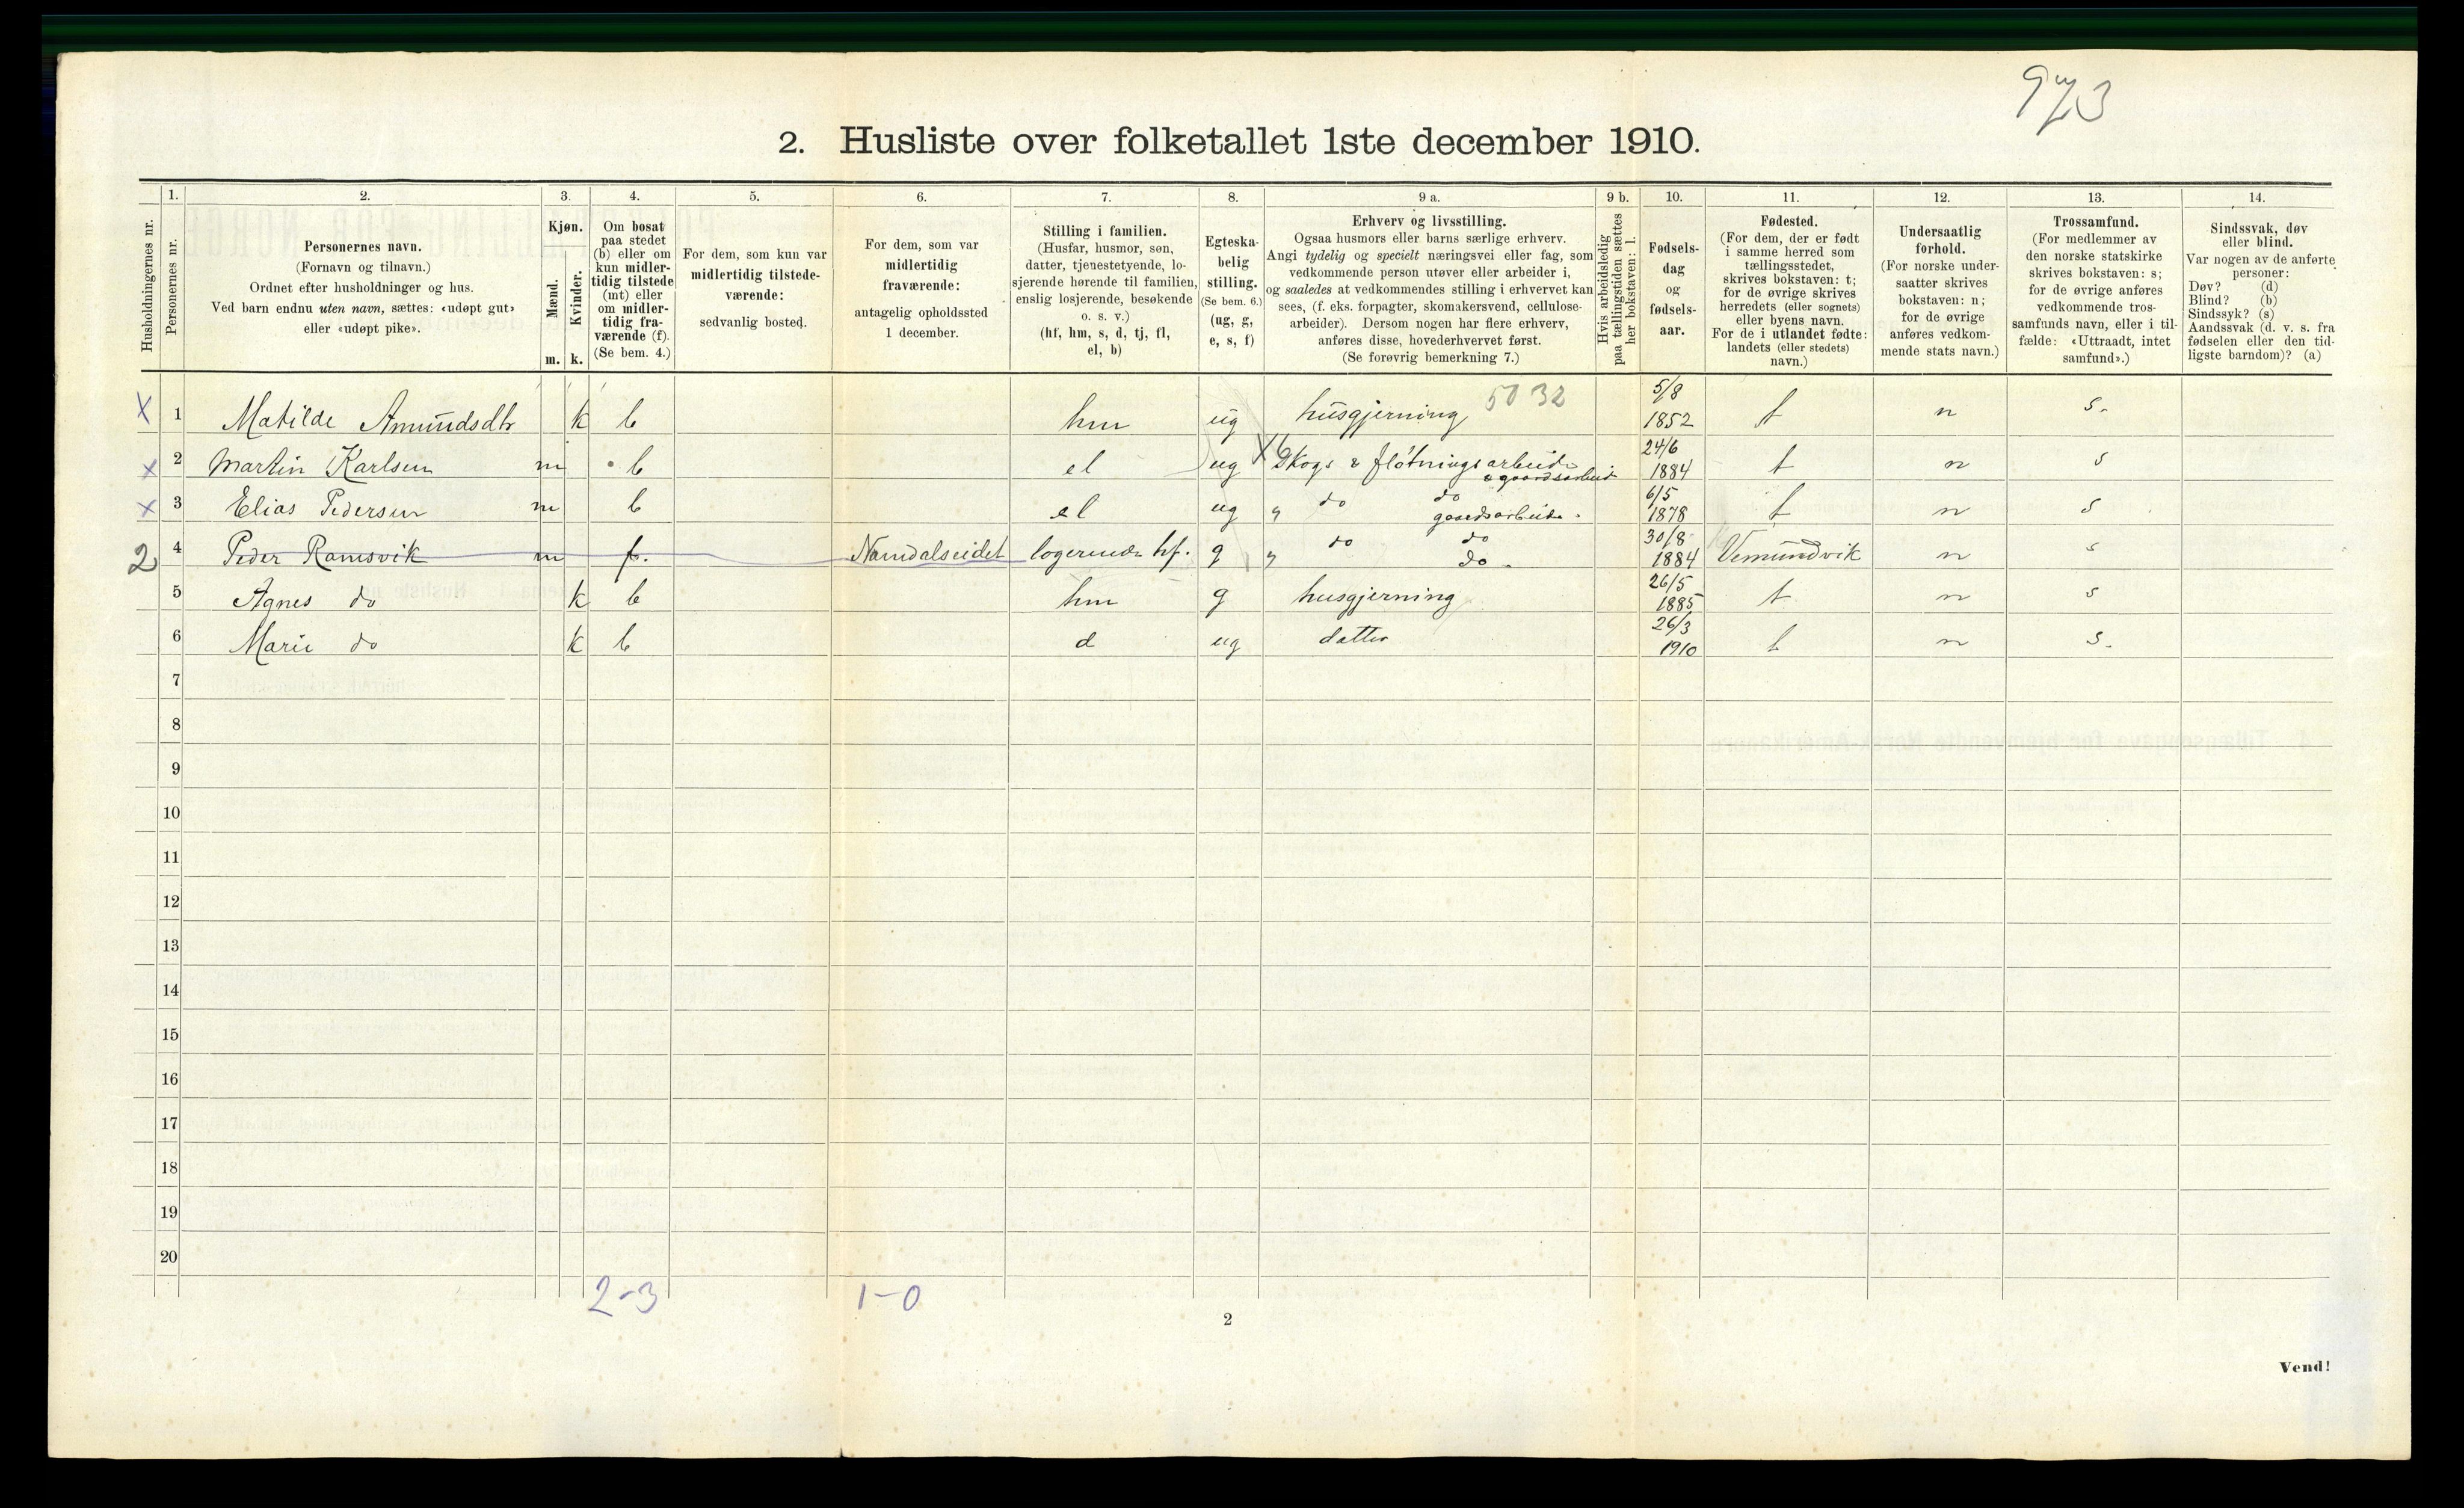 973
2. Husliste over folketallet 1ste december 1910.
Husholdningernes nr.
1.
Personernes nr.
2.
Personernes navn.
(Fornavn og tilnavn.)
Ordnet efter husholdninger og hus.
Ved barn endnu uten navn, sættes: «udøpt gut»
eller «udøpt pike».
3.
Kjøn.
Mænd.
Kvinder.
m. k.
4.
Om bosat
paa stedet
(b) eller om
kun midler-
tidig tilstede
(mt) eller
om midler-
tidig fra-
værende (f).
(Se bem. 4.)
5.
For dem, som kun var
midlertidig tilstede-
værende:
sedvanlig bosted.
6.
For dem, som var
midlertidig
fraværende:
antagelig opholdssted
1 december.
7.
Stilling i familien.
(Husfar, husmor, søn,
datter, tjenestetyende, lo-
sjerende hørende til familien,
enslig losjerende, besøkende
o. s. v.)
(hf, hm, s, d, tj, fl,
el, b)
8.
Egteska-
belig
stilling.
(Se bem. 6.)
(ug, g,
e, s, f)
9 a.
Erhverv og livsstilling.
Ogsaa husmors eller barns særlige erhverv.
Angi tydelig og specielt næringsvei eller fag, som
vedkommende person utøver eller arbeider i,
og saaledes at vedkommendes stilling i erhvervet kan
sees, (f. eks. forpagter, skomakersvend, cellulose-
arbeider). Dersom nogen har flere erhverv,
anføres disse, hovederhvervet først.
(Se forøvrig bemerkning 7.)
9 b.
Hvis arbeidsledig
paa tællingstiden sættes
her bokstaven: l.
10.
Fødsels-
dag
og
fødsels-
aar.
11.
Fødested.
(For dem, der er født
i samme herred som
tællingsstedet,
skrives bokstaven: t;
for de øvrige skrives
herredets (eller sognets)
eller byens navn.
For de i utlandet fødte:
landets (eller stedets)
navn.)
12.
Undersaatlig
forhold.
(For norske under-
saatter skrives
bokstaven: n;
for de øvrige
anføres vedkom-
mende stats navn.)
13.
Trossamfund.
(For medlemmer av
den norske statskirke
skrives bokstaven: s;
for de øvrige anføres
vedkommende tros-
samfunds navn, eller i til-
fælde: «Uttraadt, intet
samfund».)
14.
Sindssvak, døv
eller blind.
Var nogen av de anførte
personer:
Døv? (d)
Blind? (b)
Sindssyk? (s)
Aandssvak (d. v. s. fra
fødselen eller den tid-
ligste barndom)? (a)
x 1 Matilde Amundsdtr k b hm ug husgjerning 5032 5/8 1852 t n s.
x 2 Martin Karlsen m b el ug X6 Skogs & fløtningsarbeide & gaardsarbeid 24/6 1884 t n s
x 3 Elias Pedersen m b el ug " do do gaardsarbeide. 6/5 1878 t n s
2 4 Peder Ramsvik m f. Namdalseidet logerende hf. g " do do do. 30/8 1884 Vemundvik n s
5 Agnes do k b hm g husgjerning 26/5 1885 t n s
6 Marie do k b d ug datter 26/3 1910 t n s.
7
8
9
10
11
12
13
14
15
16
17
18
19
20
2-3 1-0
2
Vend!